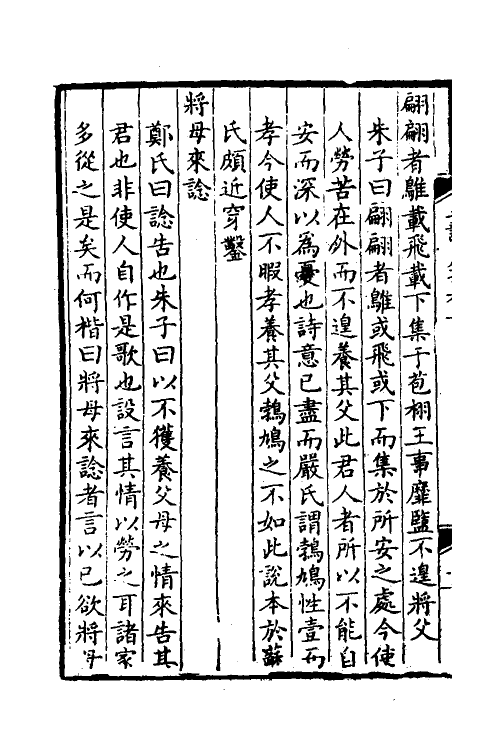 翩翩者鵻載飛載下集于苞栩王事靡盬不遑將父
朱子曰翩翩者鵻或飛或下而集於所安之處今使
人勞苦在外而不遑養其父此君人者所以不能自
安而深以為憂也詩意已盡而嚴氏謂鶉鳩性壹而
孝今使人不暇孝養其父鶉鳩之不如此說本於蘇
氏頗近穿鑿
將母來諗
鄭氏曰諗告也朱子曰以不獲養父母之情來告其
君也非使人自作是歌也設言其情以勞之耳諸家
多從之是矣而何楷曰將母來諗者言以已欲將母